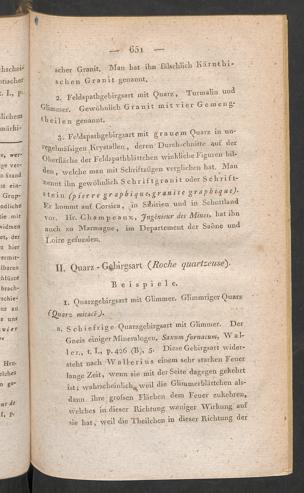 — 651 —
scher Granit. Man hat ihn fälschlich Kärnthi-
schen Granit genannt.
2. Feldspathgebirgsart mit Quarz, Turmalin und
Glimmer. Gewöhnlich Granit mit vier Gemeng-
theilen genannt.
3. Feldspathgebirgsart mit grauem Quarz in un-
regelmäßigen Krystallen, deren Durchschnitte auf der
Oberfläche der Feldspathblättchen winkliche Figuren bil-
den, welche man mit Schriftzügen verglichen hat. Man
nennt ihn gewöhnlich Schriftgranit oder Schrift-
stein (pierre graphique, granite graphique).
Er kommt auf Corsica, in Sibirien und in Schottland
vor. Hr. Champeaux, Jngénieur des Mines, hat ihn
auch zu Marmagne, im Departement der Saône und
Loire gefunden.
II. Quarz-Gebirgsart (Roche quartzeuse).
Beispiele.
1. Quarzgebirgsart mit Glimmer. Glimmriger Quarz
(Quarz micacé).
a. Schiefrige Quarzgebirgsart mit Glimmer. Der
Gneis einiger Mineralogen, Saxum fornacum, Wal-
ler., t. I., p. 426 (B), 5. Diese Gebirgsart wider-
steht nach Wallerius einem sehr starken Feuer
lange Zeit, wenn sie mit der Seite dagegen gekehrt
ist; wahrscheinlich, weil die Glimmerblättchen als-
dann ihre großen Flächen dem Feuer zukehren,
welches in dieser Richtung weniger Wirkung auf
sie hat, weil die Theilchen in dieser Richtung der